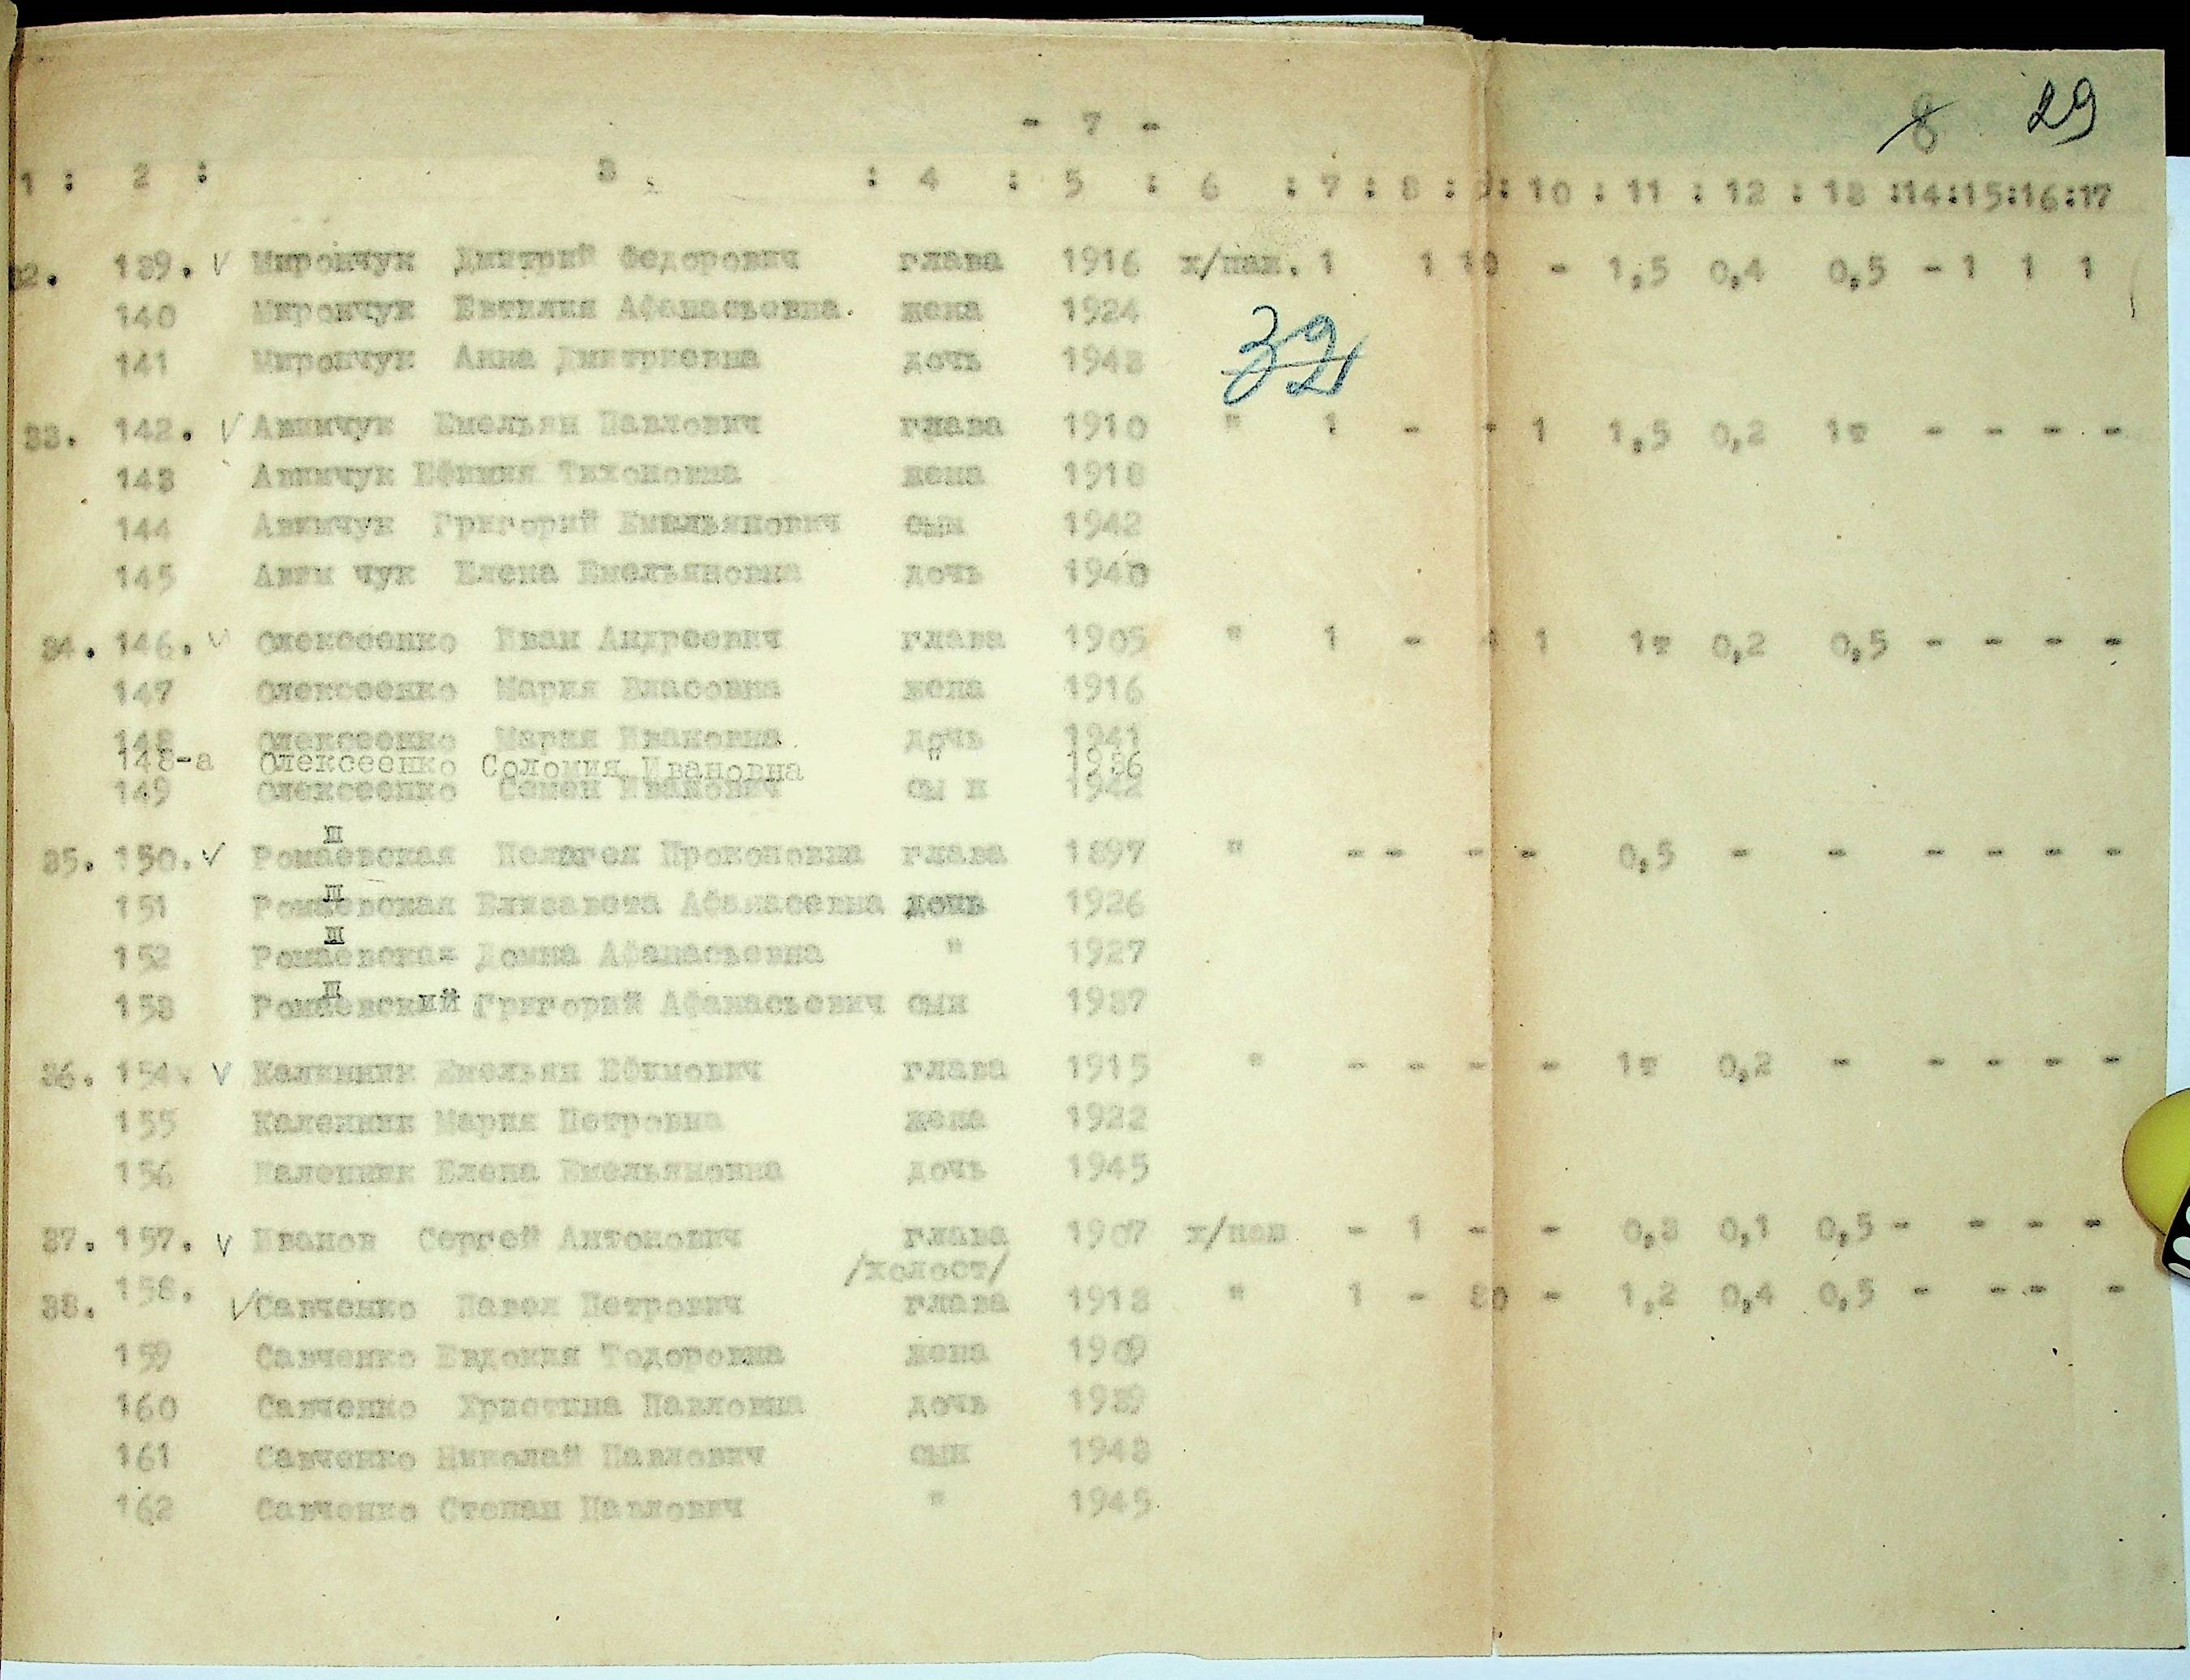 - 7 -
8 29
1 : 2 : 3 : 4 : 5 : 6 : 7 : 8 : 9 : 10 : 11 : 12 : 13 :14:15:16:17
32. 139. V Мирончук Дмитрий Федорович глава 1916 х/пах. 1 1 10 - 1,5 0,4 0,5 - 1 1 1
140 Мирончук Евтилия Афанасьевна. жена 1924
141 Мирончук Анна Дмитриевна дочь 1943
32
33. 142. V Авимчук Емельян Павлович глава 1910 " 1 - - 1 1,5 0,2 1т - - - -
143 Авимчук Ефимия Тихоновна жена 1918
144 Авимчук Григорий Емельянович сын 1942
145 Авим чук Елена Емельяновна дочь 1940
34. 146. V Олексеенко Иван Андреевич глава 1905 " 1 - 1 1т 0,2 0,5 - - - -
147 Олексеенко Мария Власовна жена 1916
148 Олексеенко Мария Ивановна дочь 1941
148-а Олексеенко Соломия Ивановна " 1936
149 Олексеенко Семен Иванович сы н 1942
Ш
35. 150. V Ромаевская Пелагея Прокоповна глава 1897 " - - - - 0,5 - - - - - -
Ш
151 Ромаевская Елизавета Афанасевна дочь 1926
Ш
152 Ромаевская Домна Афанасьевна " 1927
Ш
153 Ромаевский Григорий Афанасьевич сын 1937
36. 154. V Калинник Емельян Ефимович глава 1915 " - - - - 1т 0,2 - - - - -
155 Каленник Мария Петровна жена 1922
156 Каленник Елена Емельяновна дочь 1945
37. 157. V Иванов Сергей Антонович глава 1907 х/пов - 1 - - 0,3 0,1 0,5 - - - -
/холост/
38. 158. V Савченко Павел Петрович глава 1913 " 1 - 30 - 1,2 0,4 0,5 - - - -
159 Савченко Евдокия Тодоровна жена 1909
160 Савченко Христина Павловна дочь 1939
161 Савченко Николай Павлович сын 1943
162 Савченко Степан Павлович " 1945